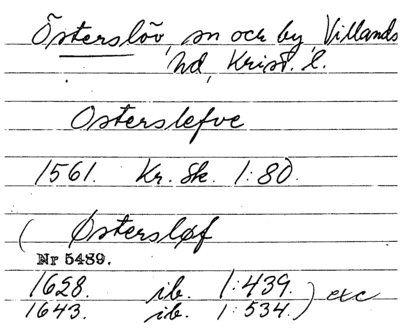 Östersløv, sn och by, Villands
hd, Krist. l.
Osterslefve
1561. Kr. Sk. 1:80.
( Østersløf
Nr 5489.
1628. ib. 1:439. ) exc
1643. ib. 1:534.